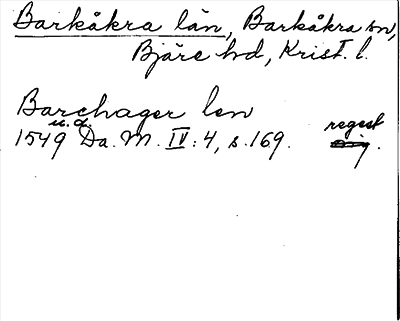 Barkåkra län, Barkåkra sn,
Bjäre hd, Krist. l.
Barchager len
u. d.
1549 Da. M. IV: 4, s. 169. regest